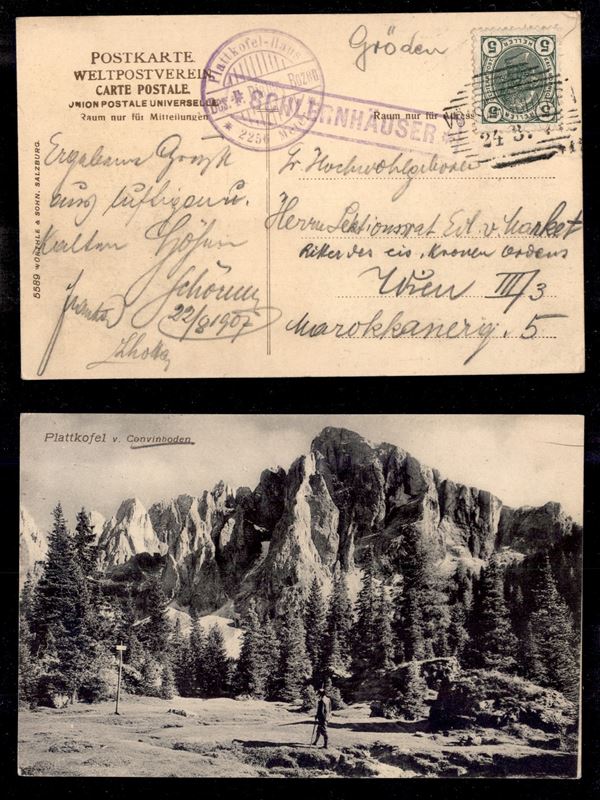 POSTKARTE.
WELTPOSTVEREIN
CARTE POSTALE.
UNION POSTALE UNIVERSELLE
Raum nur für Mitteilungen
Plattkofel-Haus
Bozen
2256
SCHLERNHÄUSER
Gröden
Raum nur für Adresse
5 HELLER 5
24 8
5589 WÜRTHLE & SOHN, SALZBURG.
aus luftigen u.
kalten Höhen
22/8 1907
Sr. Hochwohlgeboren
Herrn Sektionsrat Ed. v. Market
Ritter des eis. Kronen Ordens
Wien III/3
Marokkanerg. 5
Plattkofel v. Convinboden